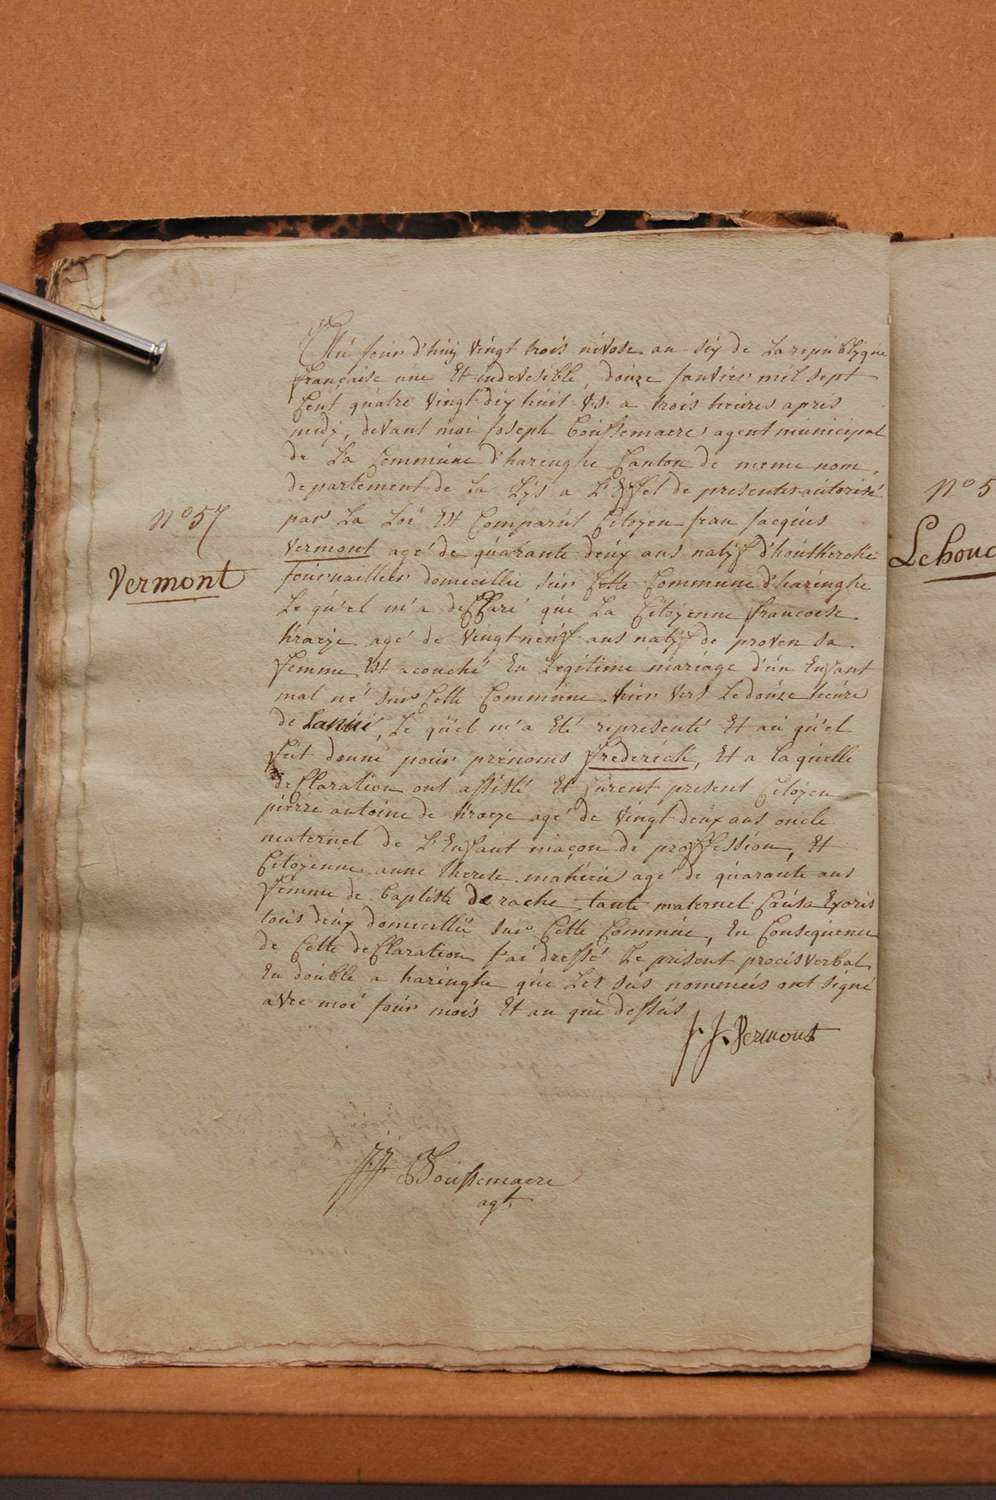 Au jour d'huij vingt trois nivose an six de La republyque
française une Et indevesible, douze janvier mil sept
Cent quatre vingt dix huit v.s. a trois heures apres
midj, devant moi joseph Coussemaere agent municipal
de La Commune d'haringhe Canton de meme nom,
departement de La Lÿs a L'Effet de presentes autorisé
par La Loi Est Comparût Citoyen jean jacques
N° 57
Vermont
vermont agé de quarante deux ans natif d'houtkercke
domecillié sur Cette Commune d'haringhe
Le qu'el m'a deClaré que La Citoyenne francoise
kraeye agé de vingt neuf ans natif de proven sa
femme Est acouché En Legitime mariage d'un Enfant
mal né sur Cette Commune hier vers Le douze heure
de Lanúi, Le qu'el m'a Eté representé Et au qu'el
fut donné pour prénoms frederick, Et a laquelle
deClaration ont assisté Et furent present Citoyen
pierre antoine de kraeye agé de vingt deux ans oncle
maternel de L'Enfant maçon de proffession, Et
Citoyenne anne therese mahieu agé de quarante ans
femme de baptiste de rache tante maternel Causa Exoris
tous deux domecillié sur Cette Commúe, En Consequence
de Cette deClaration j'ai dressé Le present procès verbal
En double a haringhe que Les sus nommeés ont signé
avec moi jour mois Et an que dessus
J. J. Vermont
J J Coussemaere
agt.
N° 5
Lehouc